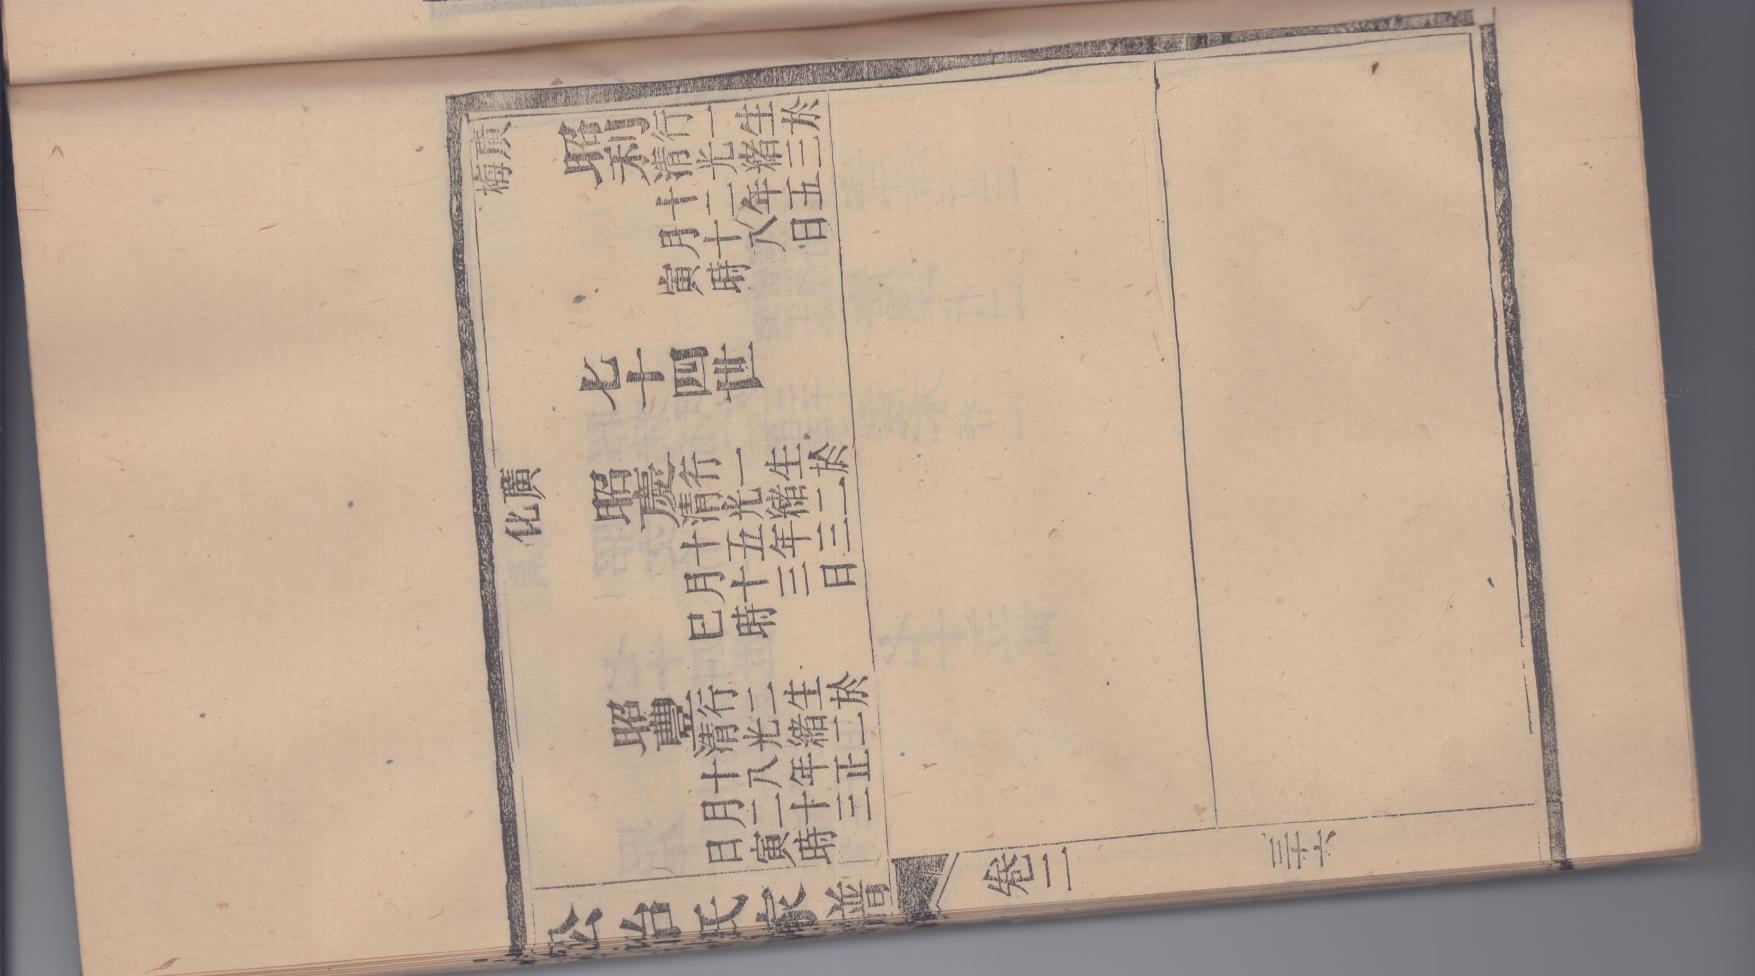 廣梅
昭利
行一生於
清光緒三
十二年五
月十八日
寅時
七十四世
廣化
昭慶
行一生於
清光緒二
十五年三
月十三日
巳時
昭豐
行二生於
清光緒二
十八年正
月二十三
日寅時
公冶氏家譜
卷二
三十六